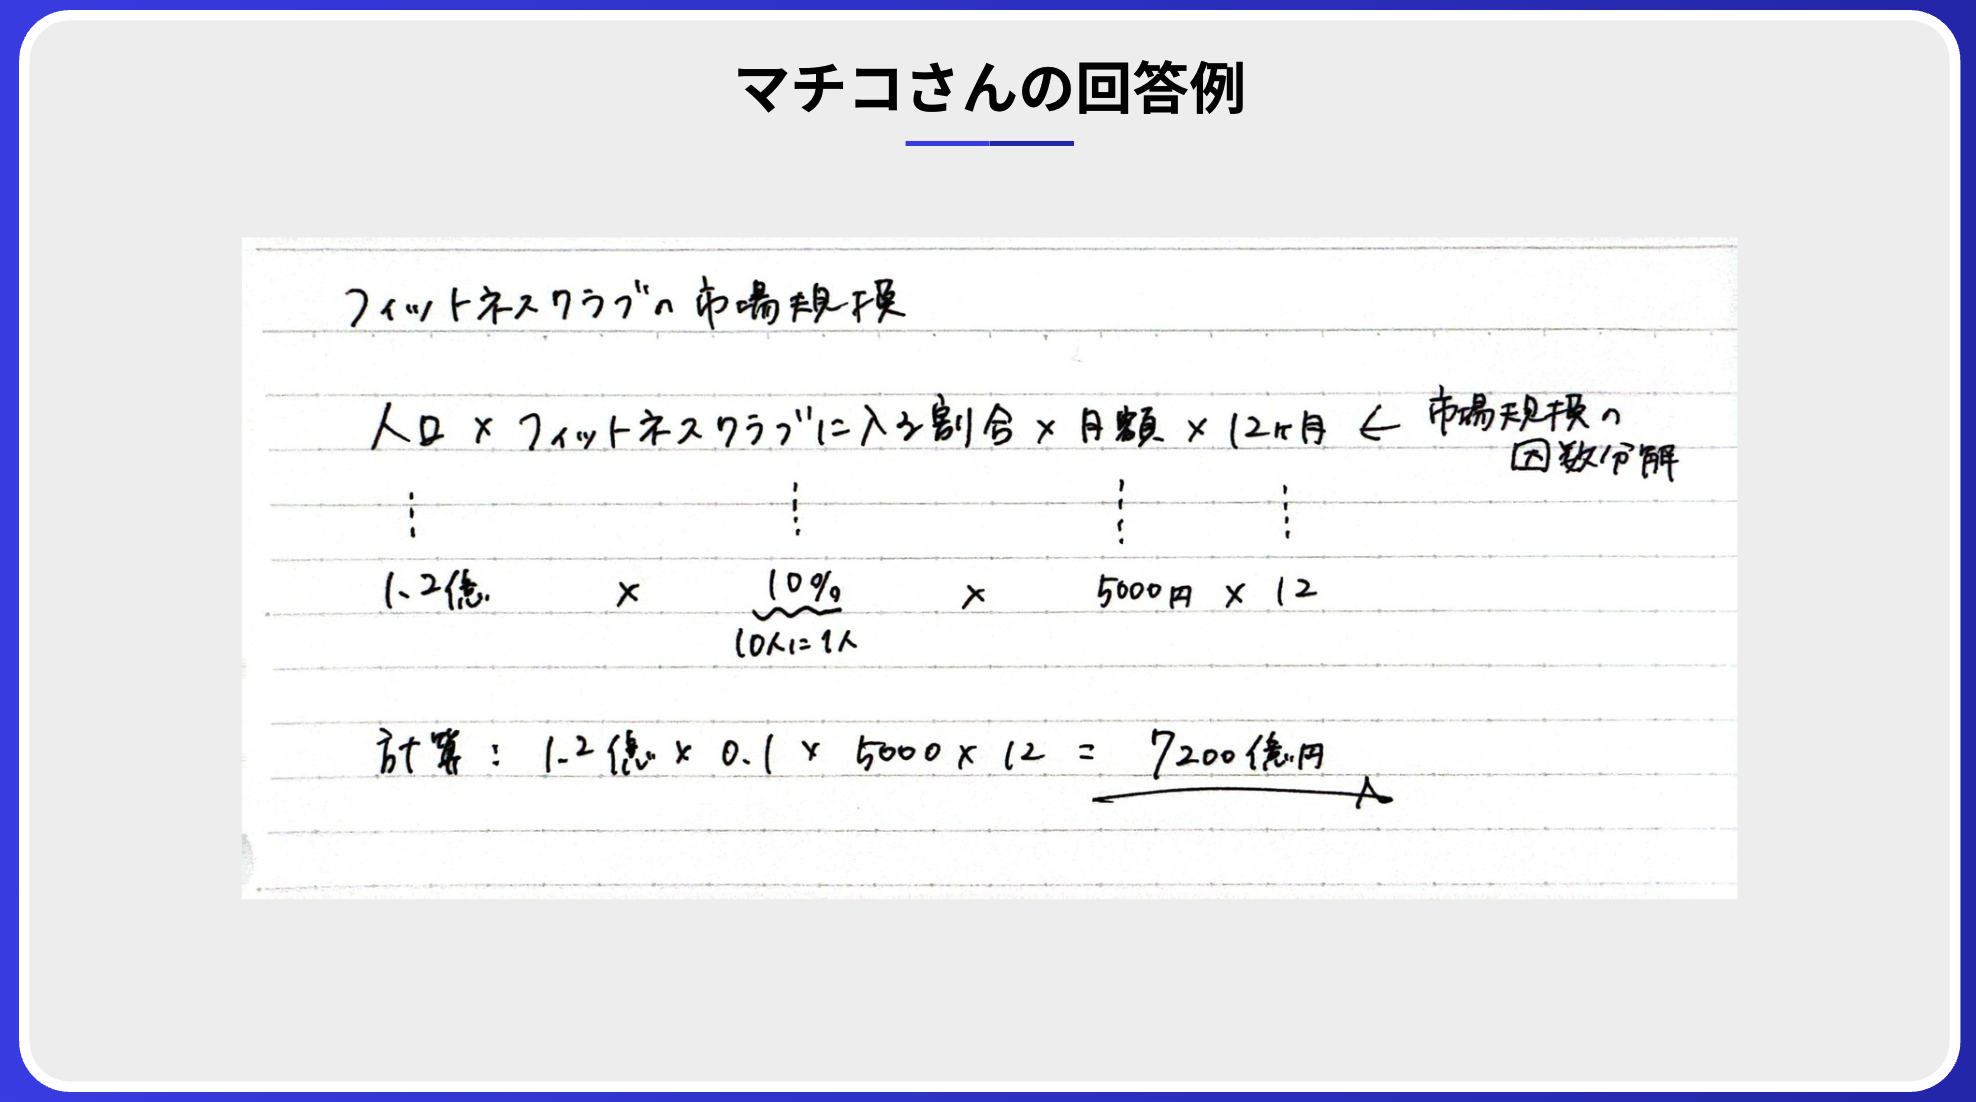 マチコさんの回答例
フィットネスクラブの市場規模
人口 × フィットネスクラブに入る割合 × 月額 × 12ヶ月 ← 市場規模の
因数分解
1.2億 × 10% × 5000円 × 12
10人に1人
計算 : 1.2億 × 0.1 × 5000 × 12 = 7200億円